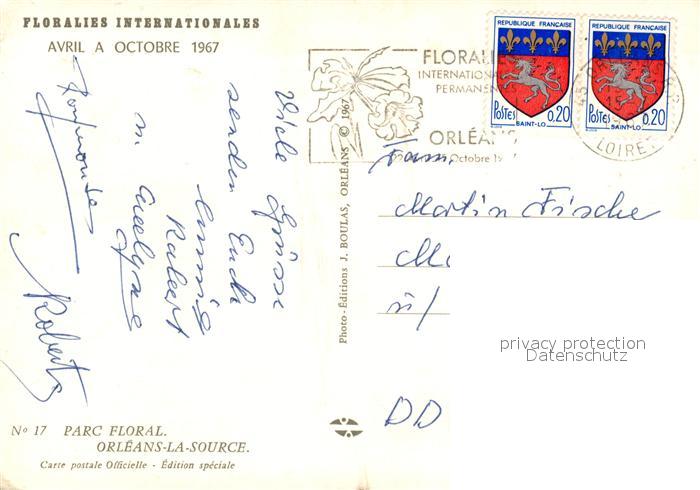 FLORALIES INTERNATIONALES
AVRIL A OCTOBRE 1967
Viele Grüsse
senden Euch
Robert
m. Evelyne
Roberts
No 17 PARC FLORAL.
ORLÉANS-LA-SOURCE.
Carte postale Officielle - Édition spéciale
Photo-Éditions J. BOULAS, ORLÉANS © 1967
FLORALIES
INTERNATIONALES
PERMANENTES
ORLÉANS
Octobre
REPUBLIQUE FRANÇAISE
POSTES 0,20
SAINT-LO
REPUBLIQUE FRANÇAISE
POSTES 0,20
SAINT-LO
45
LOIRET
Fam.
Martin Fische
M
ü/
DD
privacy protection
Datenschutz